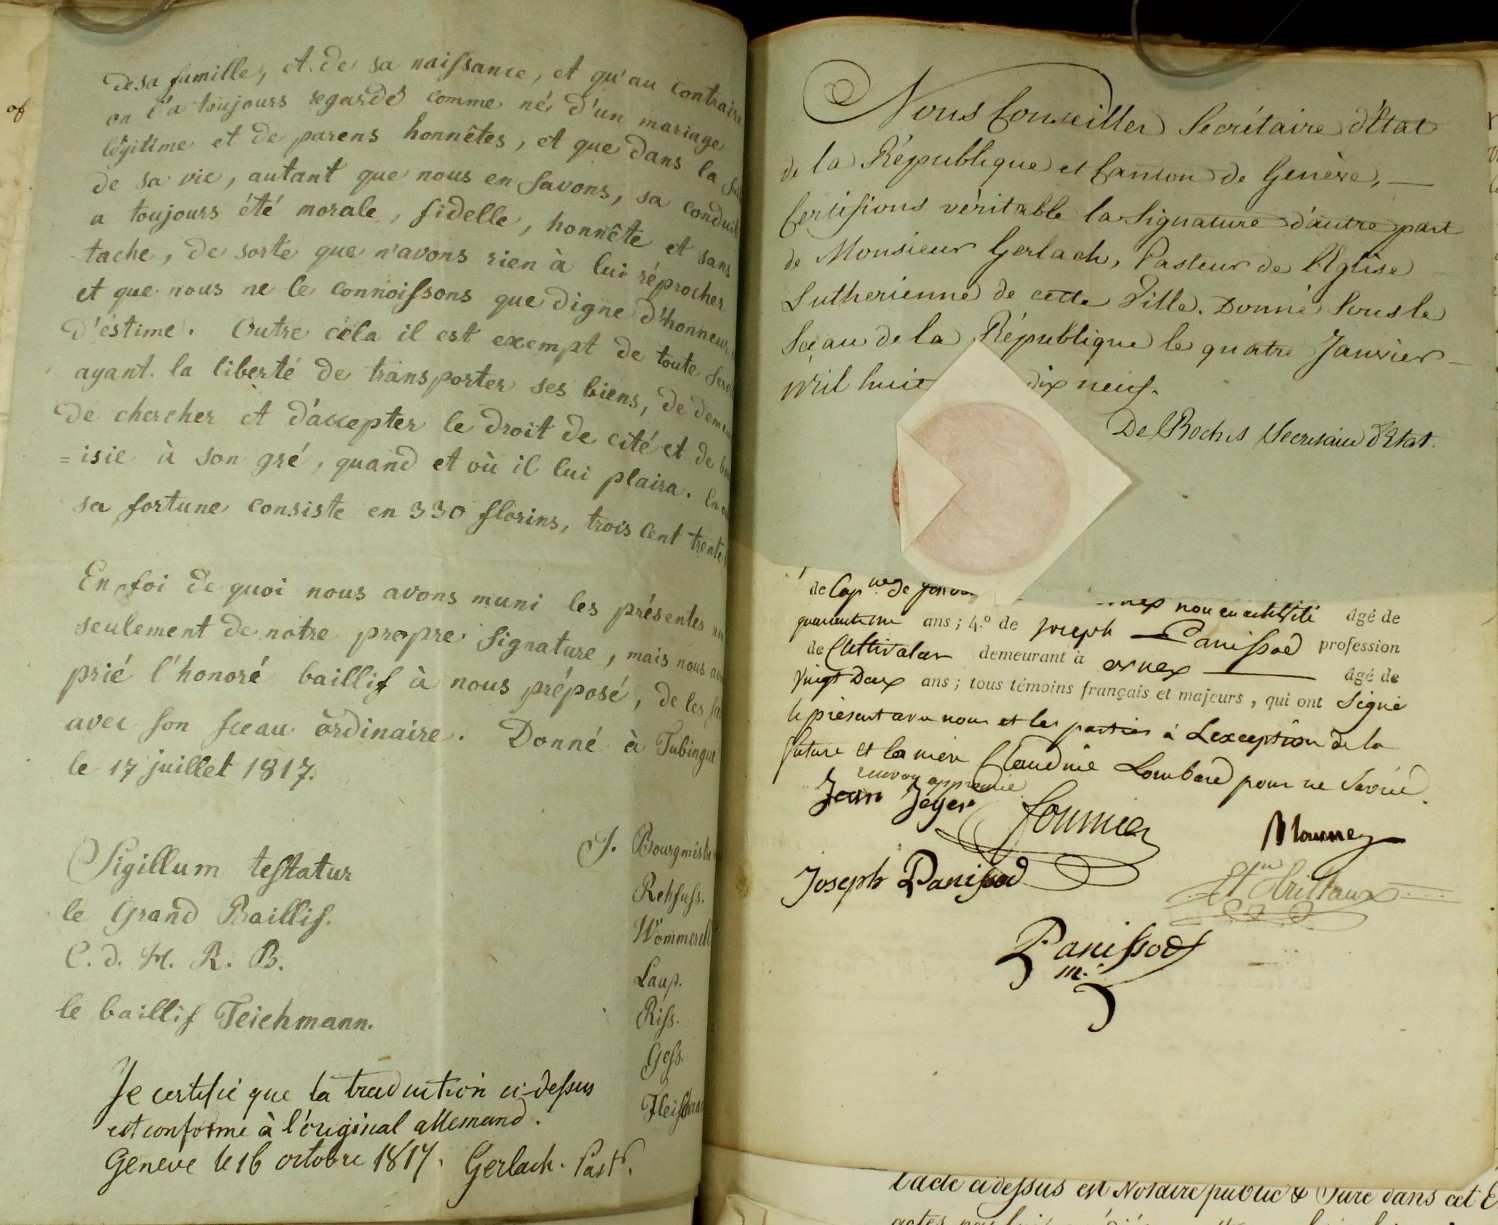 de sa famille, et de sa naissance, et qu'au contraire
on l'a toujours regardé comme né d'un mariage
légitime et de parens honnêtes, et que dans la
de sa vie, autant que nous en savons, sa conduit
a toujours été morale, fidelle, honnête et sans
tache, de sorte que n'avons rien à lui réprocher
et que nous ne le connoissons que digne d'honneur
d'éstime. Outre cela il est exempt de toute
ayant la liberté de transporter ses biens, de
de chercher et d'accepter le droit de cité et de
= isie à son gré, quand et où il lui plaira.
sa fortune consiste en 330 florins, trois cent trente
En foi de quoi nous avons muni les présentes
seulement de notre propre signature, mais nous
prié l'honoré baillif à nous préposé, de les
avec son sceau ordinaire. Donné à Tubingue
le 17 juillet 1817.
Sigillum testatur
le Grand Baillif.
C. d. H. R. B.
le baillif Teichmann.
J. Bourgmestre
Rehfuss.
Wommerell
Laup.
Riss.
Gess.
Je certifie que la traduction ci-dessus
est conforme à l'original allemand.
Genève le 16 octobre 1817. Gerlach. Past.
Nous Conseiller Secrétaire d'Etat
de la République et Canton de Genève, —
Certifions véritable la Signature d'autre part
de Monsieur Gerlach, Pasteur de l'Eglise
Luthérienne de cette Ville. Donné sous le
Sceau de la République le quatre Janvier
mil huit dix neuf.
De Roches Secrétaire d'Etat.
de non encore âgé de
ans ; 4.º de Joseph Panissod profession
de Cultivateur demeurant à ornex âgé de
vingt Deux ans ; tous témoins français et majeurs, qui ont Signé
le présent avec nous et les parties à L'exception de la
future et la mère Claudine Lombard pour ne savoir.
renvoy approuvé
Jean Jeyer Fournier
Joseph Panissod
Panissod
m.
l'acte ci dessus est Notaire public & Juré dans cet